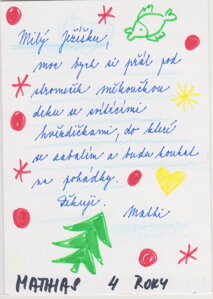 Milý Ježíšku,
moc bych si přál pod
stromeček měkoučkou
deku se svítícími
hvězdičkami, do které
se zabalím a budu koukat
na pohádky.
Děkuji.
Mathi
MATHIAS 4 ROKY